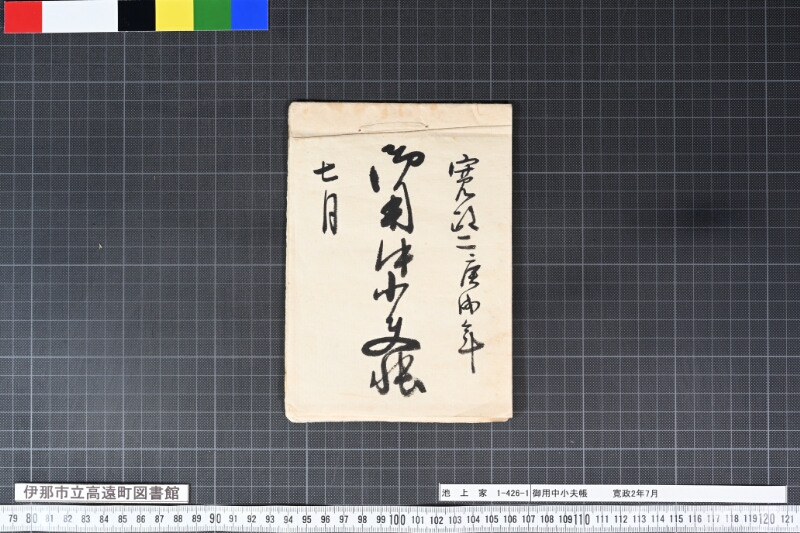 寛政二庚戌年
御用中小夫帳
七月
伊那市立高遠町図書館
池上家 1-426-1 御用中小夫帳 寛政2年7月
79 80 81 82 83 84 85 86 87 88 89 90 91 92 93 94 95 96 97 98 99 100 101 102 103 104 105 106 107 108 109 110 111 112 113 114 115 116 117 118 119 120 121